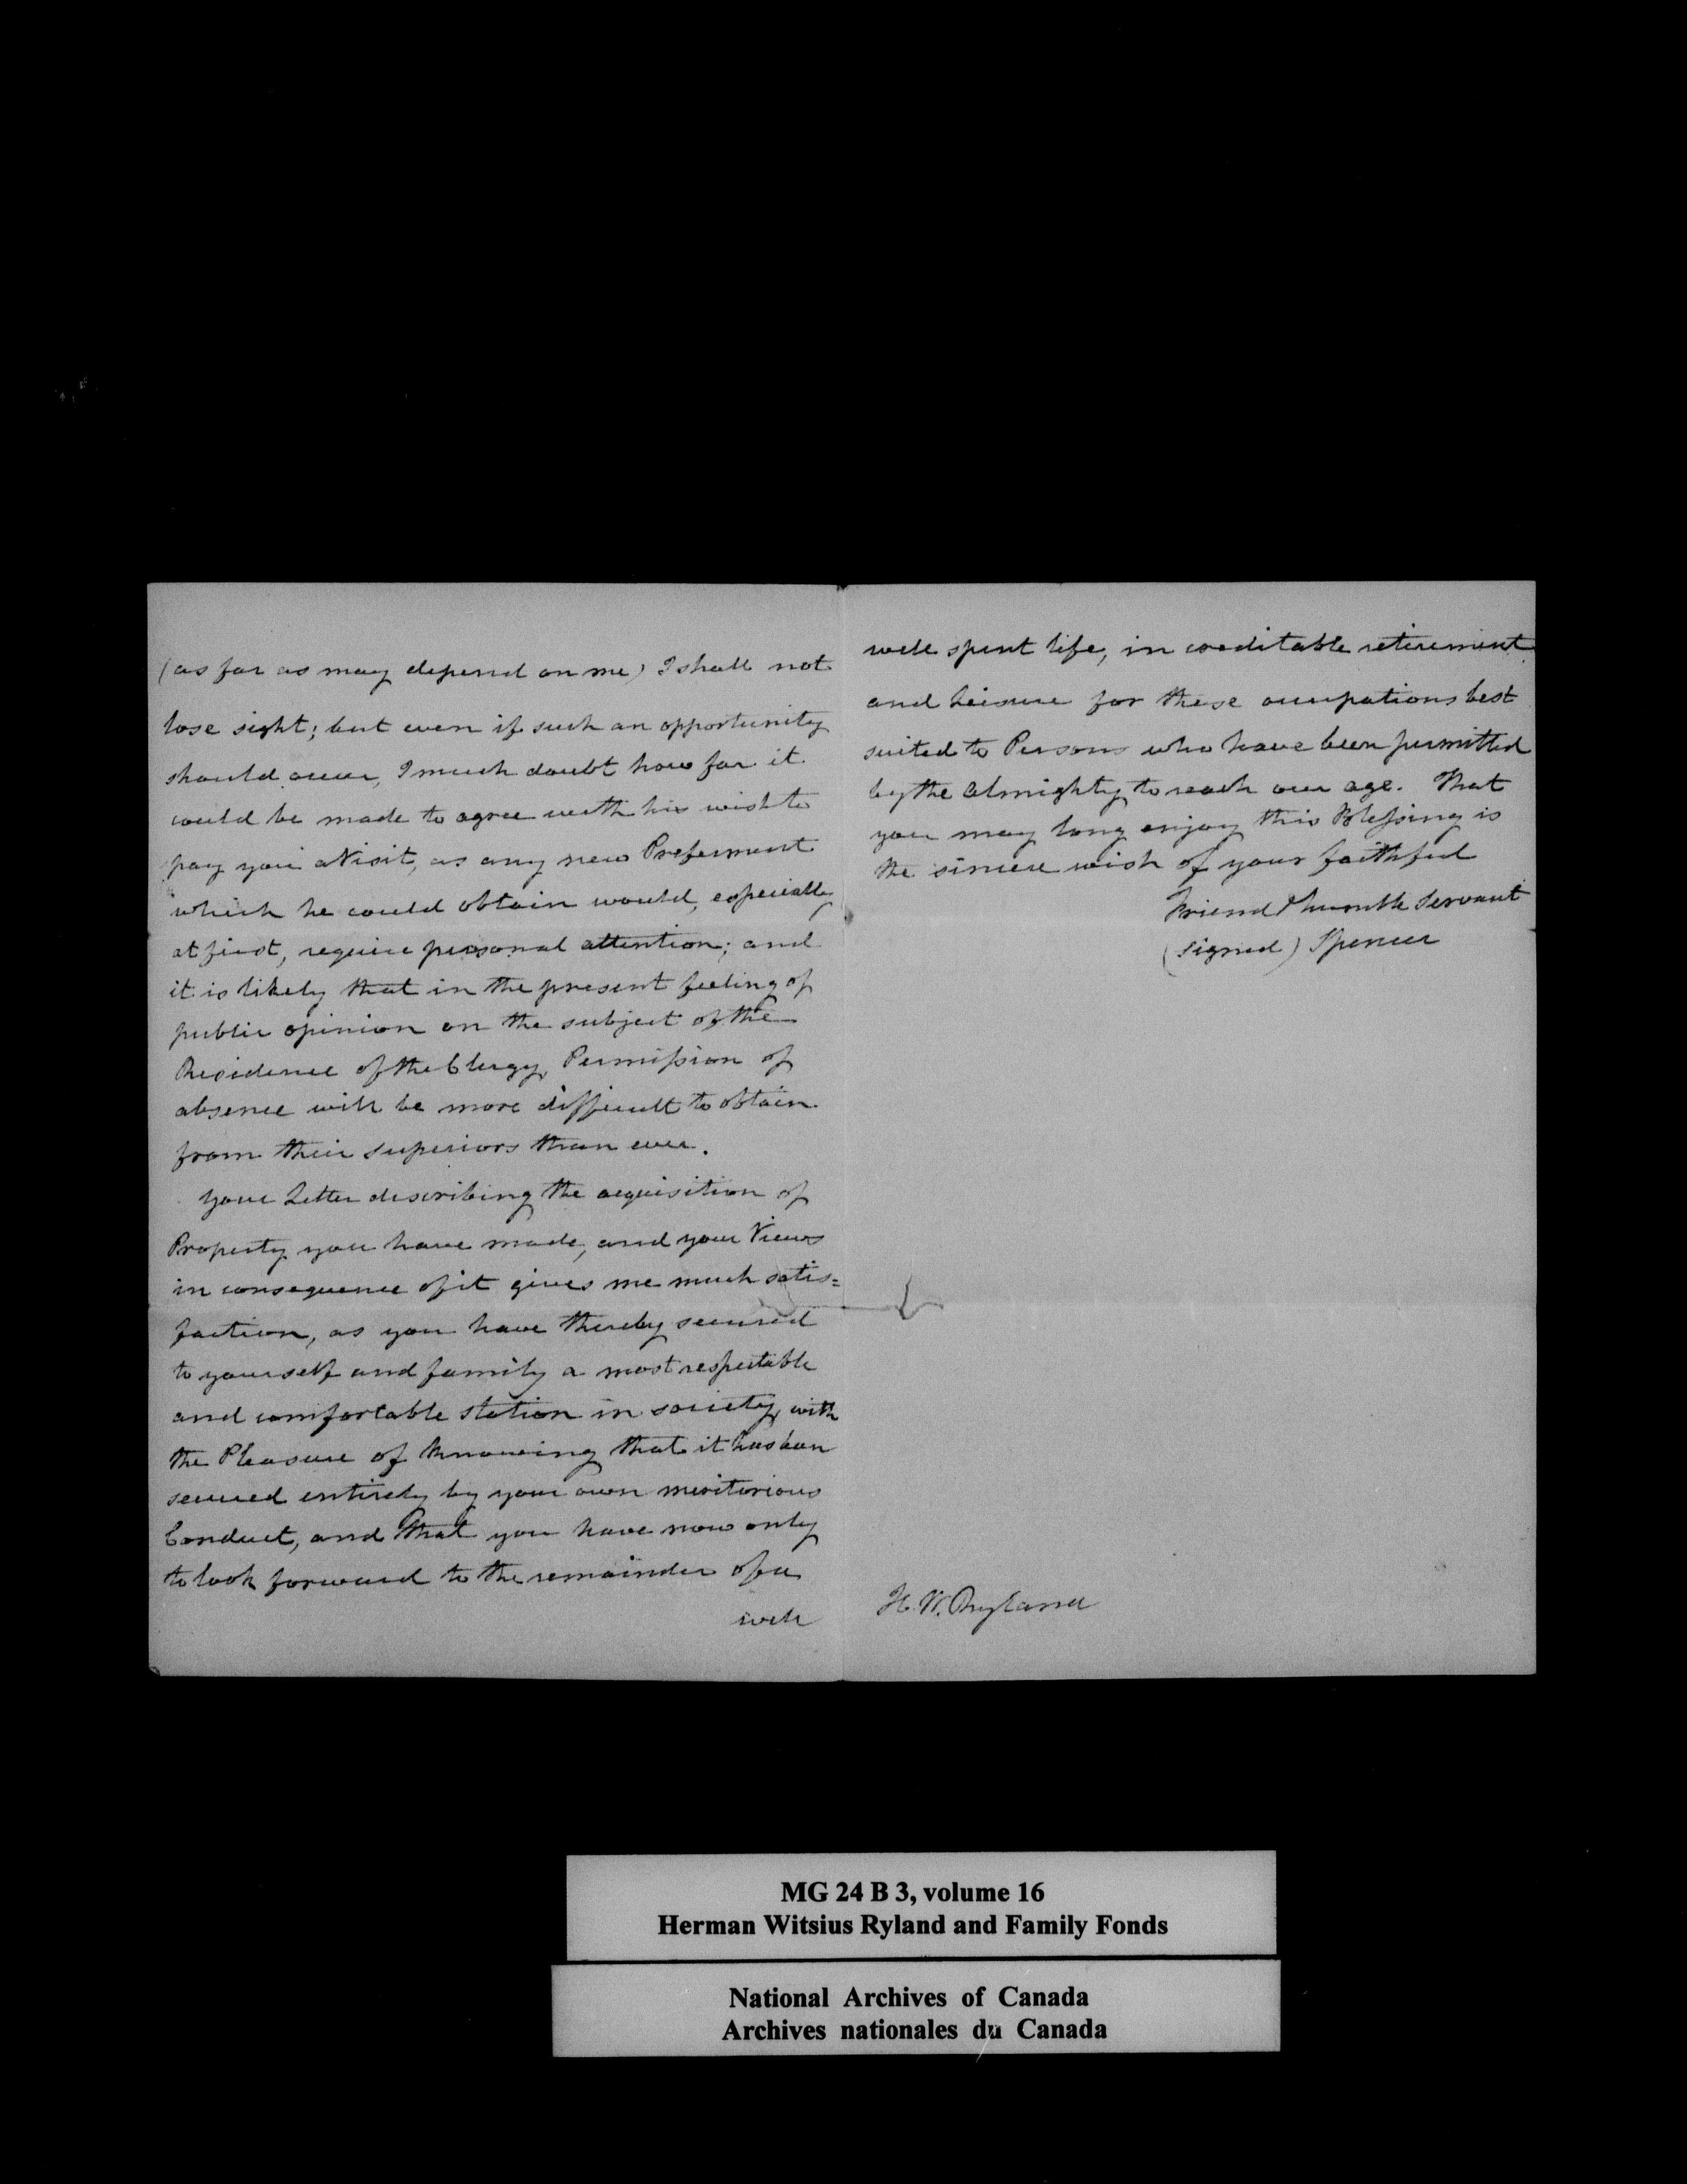 (as far as may depend on me) I shall not
lose sight; but even if such an opportunity
should occur, I much doubt how far it
could be made to agree with his wish to
pay you a Visit, as any new Preferment
which he could obtain would, especially
at first, require personal attention; and
it is likely that in the present feeling of
public opinion on the subject of the
Residence of the Clergy, Permission of
absence will be more difficult to obtain
from their superiors than ever.
Your Letter describing the acquisition of
Property you have made, and your Views
in consequence of it gives me much satis=
faction, as you have thereby secured
to yourself and family a most respectable
and comfortable station in society, with
the Pleasure of knowing that it has been
secured entirely by your own meritorious
Conduct, and that you have now only
to look forward to the remainder of a
well
well spent life, in creditable retirement
and leisure for those occupations best
suited to Persons who have been permitted
by the Almighty to reach our age. That
you may long enjoy this Blessing is
the sincere wish of your faithful
Friend & humble Servant
(signed) Spencer
H. W. Ryland
MG 24 B 3, volume 16
Herman Witsius Ryland and Family Fonds
National Archives of Canada
Archives nationales du Canada